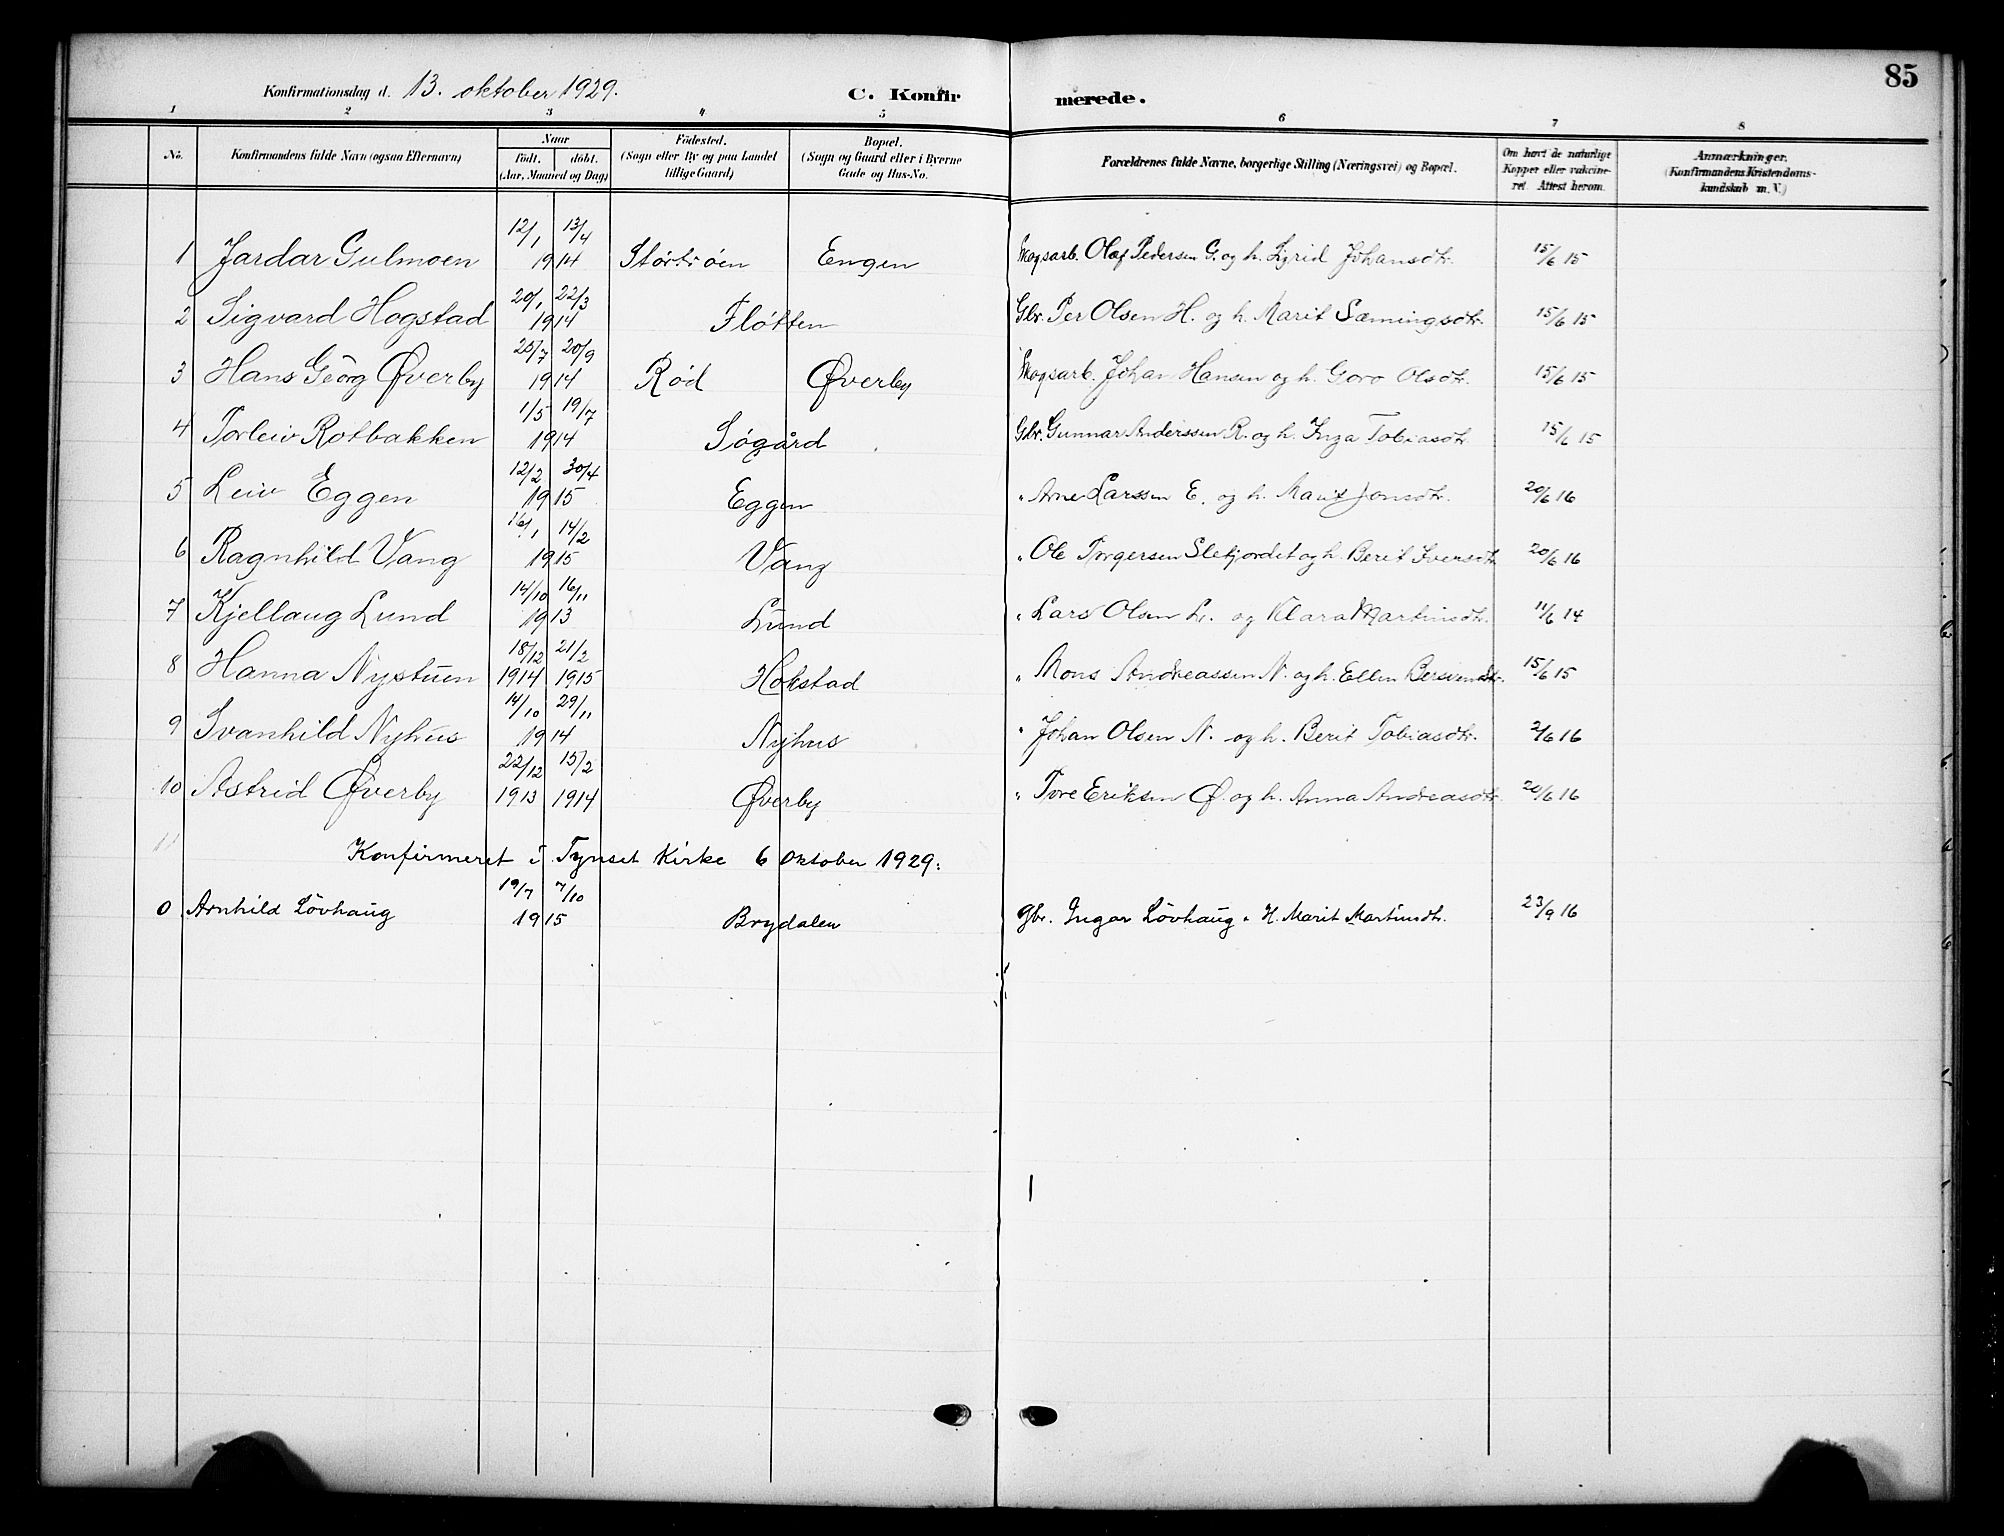 85
Konfirmationsdag d. 13. oktober 1929. C. Konfirmerede.
1 2 3 4 5 6 7 8
No. Konfirmandens fulde Navn (ogsaa Efternavn) Naar födt. döbt. (Aar, Maaned og Dag) Födested. (Sogn eller By og paa Landet tillige Gaard) Bopæl. (Sogn og Gaard eller i Byerne Gade og Hus-No. Forældrenes fulde Navne, borgerlige Stilling (Næringsvei) og Bopæl. Om havt de naturlige Kopper eller vakcineret. Attest herom. Anmærkninger. (Konfirmandens Kristendomskundskab m. V.)
1 Jardar Gulmoen 12/1 13/4 1914 Störtröen Engen Skogsarb. Olaf Pedersen G. og h. Sigrid Johansdtr. 15/6 15
2 Sigvard Hogstad 20/1 22/3 1914 Fløtten Gbr. Per Olsen H. og h. Marit Sæmingsdtr. 15/6 15
3 Hans Georg Øverby 25/7 20/9 1914 Rød Øverby Skogsarb. Johan Hansen og h. Goro Olsdtr. 15/6 15
4 Torleiv Rotbakken 1/5 19/7 1914 Søgård Gbr. Gunnar Anderssen R. og h. Inga Tobiasdtr. 15/6 15
5 Leiv Eggen 12/2 30/4 1915 Eggen " Arne Larssen E. og h. Marit Jonsdtr. 20/6 16
6 Ragnhild Vang 16/1 14/2 1915 Vang " Ole Torgersen Slefjordet og h. Berit Iversdtr 20/6 16
7 Kjellaug Lund 14/10 16/11 1913 Lund " Lars Olsen L. og Klara Martinsdtr. 11/6 14
8 Hanna Nystuen 18/12 21/2 1914 1915 Hokstad " Mons Andreassen N. og h. Ellen Bersvendtr. 15/6 15
9 Svanhild Nyhus 14/10 29/11 1914 Nyhus " Johan Olsen N. og h. Berit Tobiasdtr. 2/6 16
10 Astrid Øverby 22/12 15/2 1913 1914 Øverby " Tore Eriksen Ø. og h. Anna Andreasdtr. 20/6 16
11 Konfirmeret i Tynset Kirke 6 oktober 1929:
0 Arnhild Lövhaug 19/7 7/10 1915 Brydalen gbr. Ingar Lövhaug " H. Marit Martinsdtr. 23/9 16